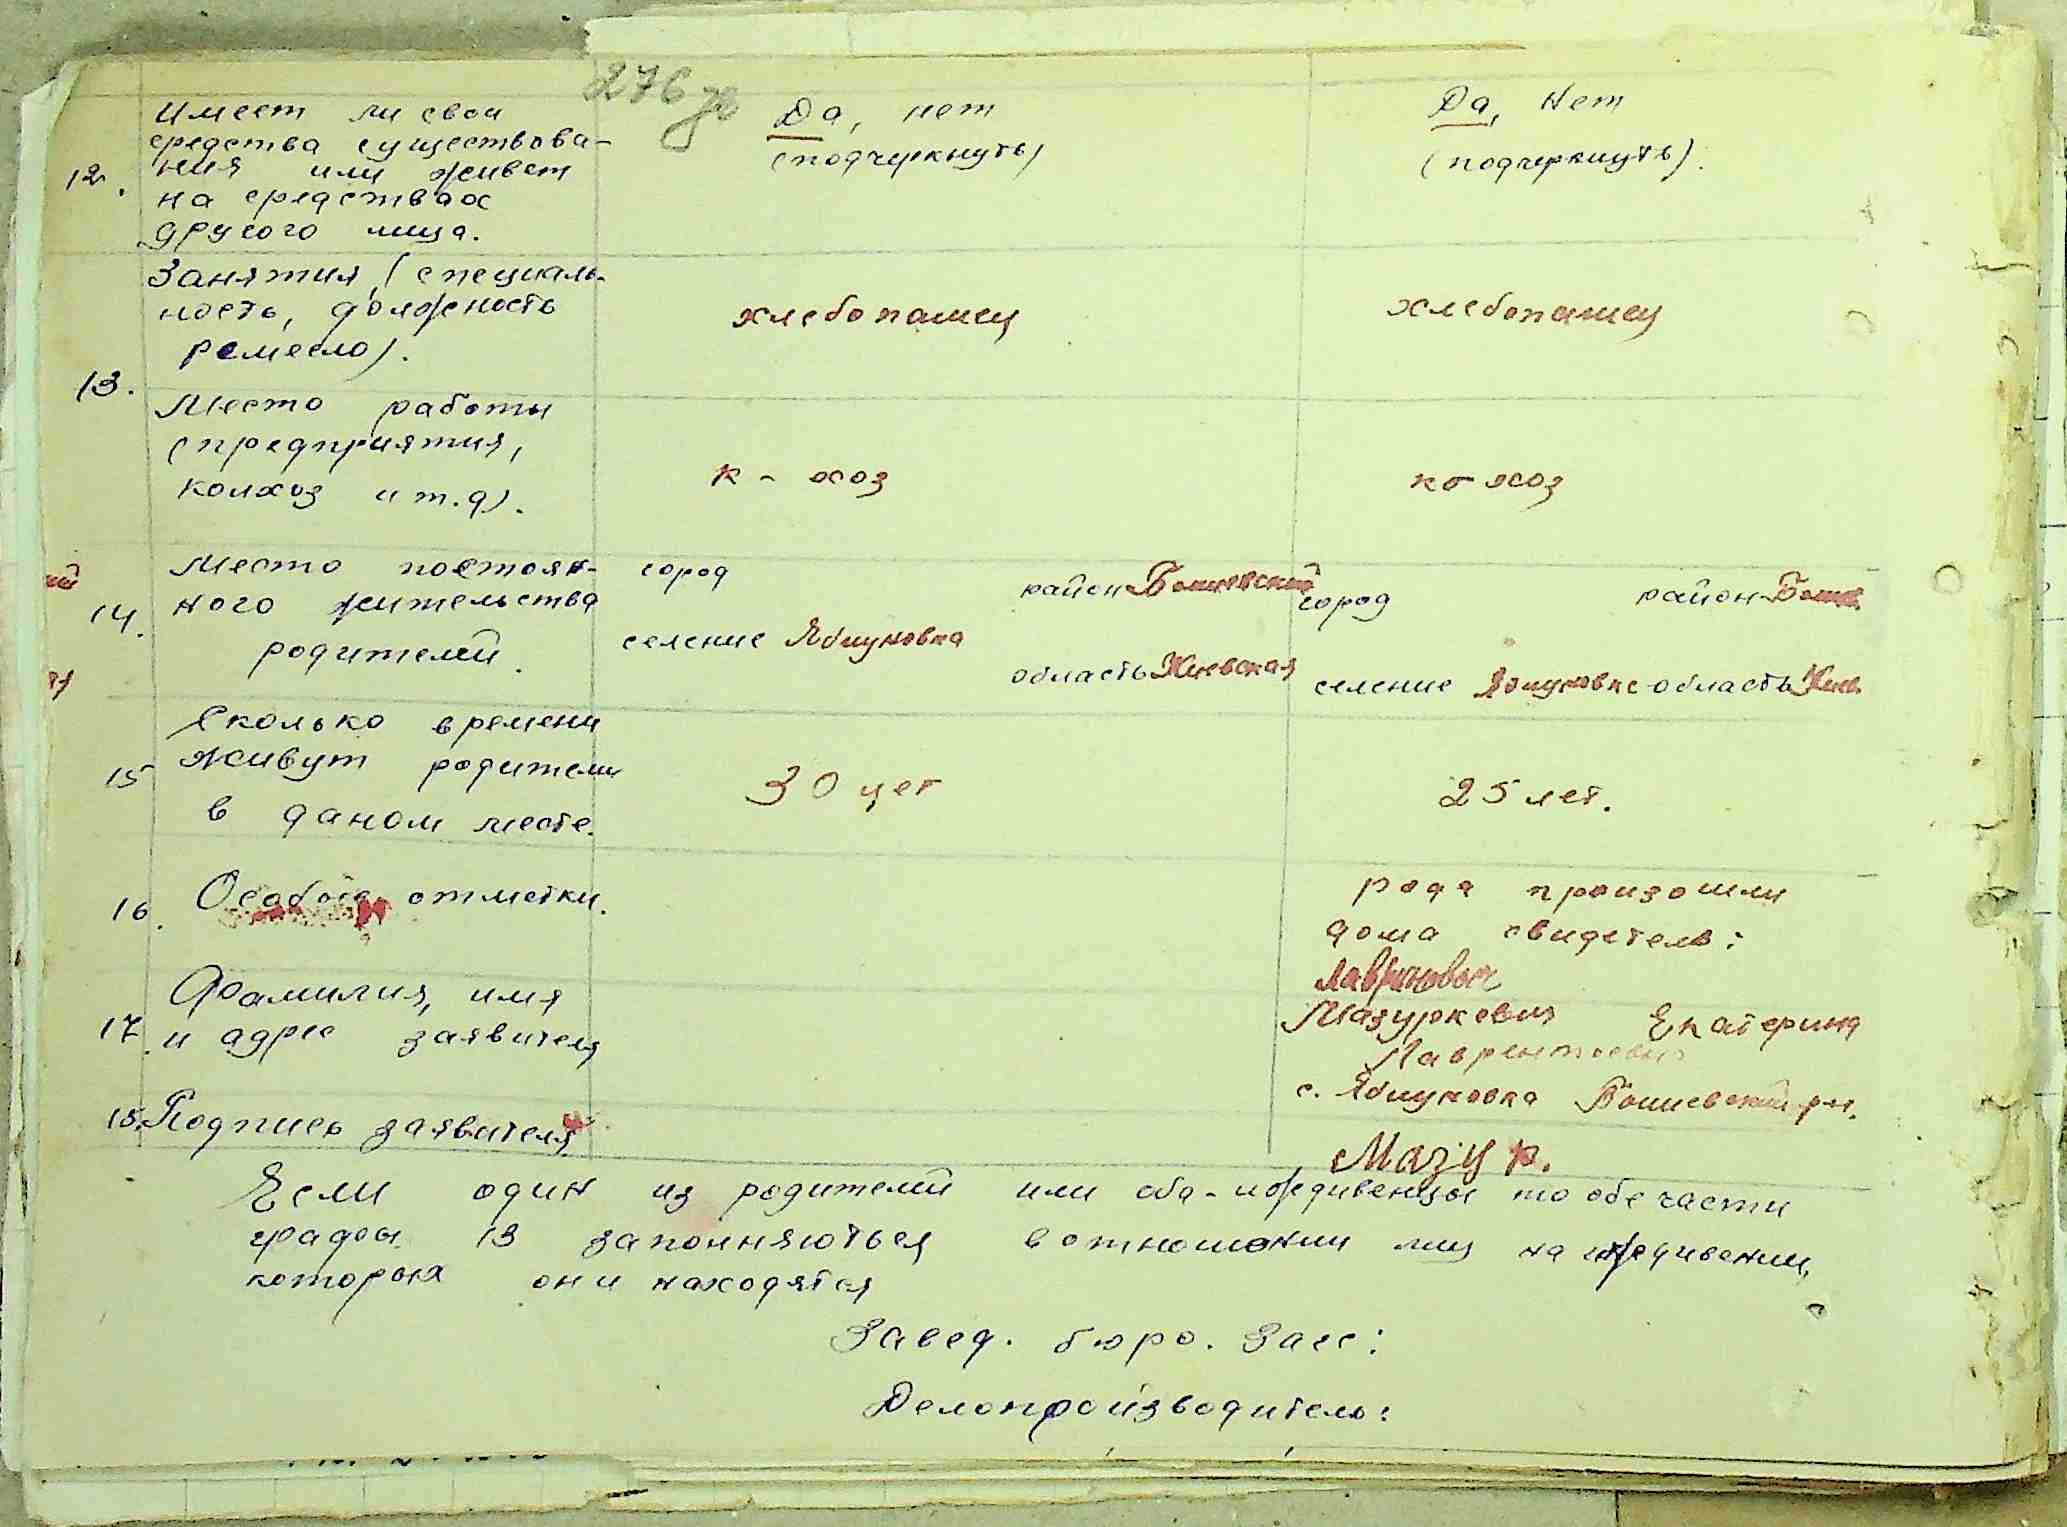 276
12. Имеет ли свои
средства существова-
ния или живет
на средствах
другого лица.
Да, нет
(подчеркнуть)
Да, Нет
(подчеркнуть).
13.
Занятия, (специаль-
ность, должность
ремесло).
хлебопашец
хлебопашец
Место работы
(предприятия,
колхоз и т.д).
к - хоз
ко- хоз
14.
Место постоян-
ного жительства
родителей.
город
район
селение Яблуновка
область Киевская
город
район
селение Яблуновке область Киев.
15
Сколько времени
живут родители
в даном месте.
30 лет
25 лет.
16. Особые отметки.
рода произошли
дома свидетель:
17.
Фамилия, имя
и адрес заявителя
Мазуркевич Екатерина
Лаврентьевна
с. Яблуновка р-н.
18. Подпись заявителя
Мазур.
Если один из родителей или оба - иждивенцы то обе части
графы 13 заполняються в отношении лиц на иждивении,
которых они находятся
Завед. бюро. Загс:
Делопроизводитель: